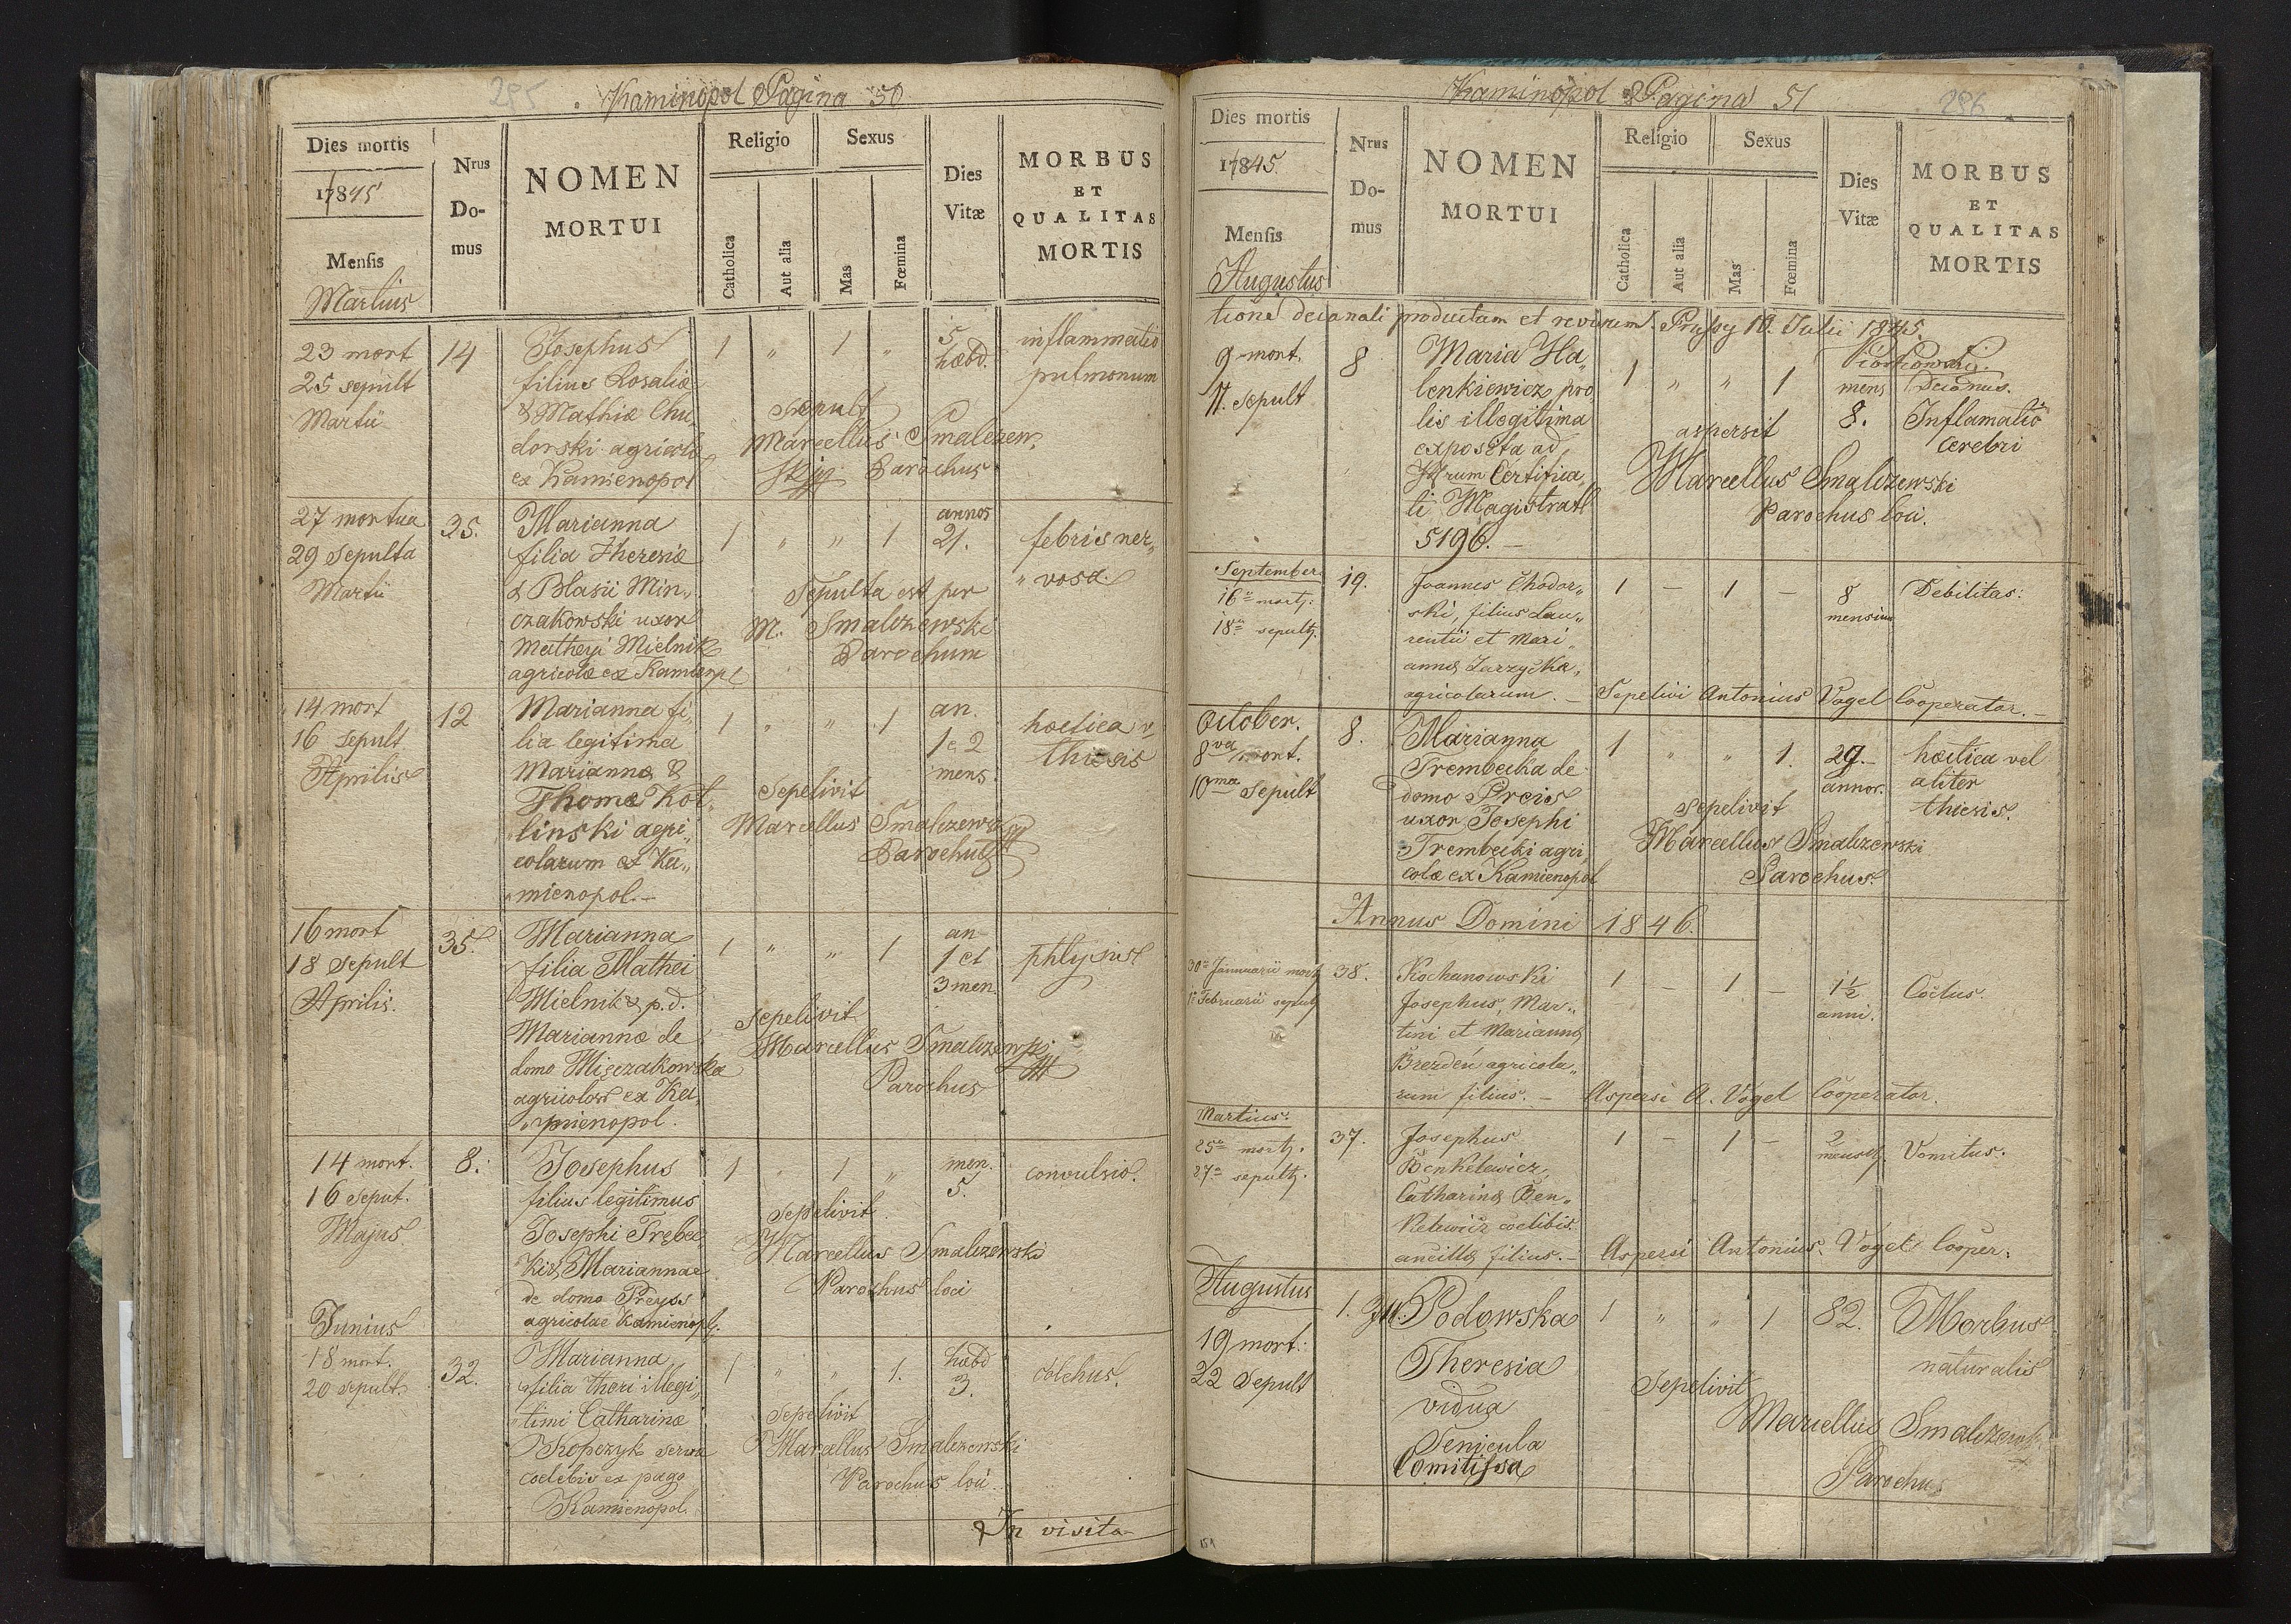 285
Kaminopol Pagina 50
Dies mortis
17845
Mensis
Martius
Nrus Do-mus
NOMEN
MORTUI
Religio
Catholica
Aut alia
Sexus
Mas
Fœmina
Dies
Vitæ
MORBUS
ET
QUALITAS
MORTIS
23 mort
25 sepult
Martii
14
Josephus
filius Rosaliæ
& Mathiæ Chu„
dorski agricolæ
ex Kamienopol
1 „ 1 „
5
hæbd.
inflammatio
pulmonum
sepult
Marcellus Smalczew„
ski Parochus
27 mortua
29 Sepulta
Martii
35.
Marianna
filia Theresiæ
& Blasii Min„
czakowski uxor
Matheji Mielnik
agricolæ ex Kamienpl
1 „ „ 1
annos
21.
febris ner„
„vosa.
Sepulta est per
M. Smalczewski
Parochum
14 mort
16 Sepult
Aprilis
12
Marianna fi„
lia legitima
Mariannæ &
Thomæ Kot„
linski agri„
colarum ex Ka„
mienopol.—
1 „ „ 1
an.
1 e 2
mens.
hoetica v
thiesis
Sepelivit
Marcellus Smalczewski
Parochus
16 mort
18 Sepult
Aprilis.
35.
Marianna
filia Mathei
Mielnik & p.d.
Mariannæ de
domo Mięczakowska
agricolar ex Ka„
mienopol.
1 „ „ 1
an
1 et
3 men.
phtysis
Sepelivit
Marcellus Smalczewski
Parochus
14 mort.
16 seput.
Majus
8.
Josephus
filius legitimus
Josephi Trębec
ki & Mariannae
de domo Preyss
agricolae Kamienopl.
1 „ 1 „
men.
5.
convulsio.
Sepelivit
Marcellus Smalczewski
Parochus loci
Junius
18 mort.
20 sepult.
32.
Marianna
filia thori illegi„
timi Catharinæ
Propczyk serva
coelebis ex pago
Kamienopol.
1 „ „ 1.
hæbd
3.
Sepelivit
Marcellus Smalczewski
Parochus loci.
In visita
286
Kaminopol Pagina 51
Dies mortis
17845.
Mensis
Augustus
Nrus Do-mus
NOMEN
MORTUI
Religio
Catholica
Aut alia
Sexus
Mas
Fœmina
Dies
Vitæ
MORBUS
ET
QUALITAS
MORTIS
tione decanali productum et revisum. Prussy 10. Julii 1845.
Decanus.
9 mort.
11. sepult
8
Maria Ha„
lenkiewicz pro„
lis illegitima
exposita ad
Nrum Certifica„
ti Magistratl
5196.—
1 „ „ 1
mens
8.
Inflamatio
Cerebri
aspersit
Marcellus Smalczewski
Parochus loci.
September
16a mort.
18a sepult.
19.
Joannes Chodor„
ski, filius Lau„
rentii et Mari„
annæ Zarzycka„
agricolarum.—
1 — 1 —
8
mensium
Debilitas:
Sepelivi Antonius Vogel Cooperator.—
October.
8va mort.
10ma Sepult
8.
Marianna
Trembecka de
domo Preis
uxor Josephi
Trembecki agri„
colæ ex Kamienopol
1 „ „ 1.
29.—
annor.
hoetica vel
aliter
thiesis.
Sepelivit
Marcellus Smalczewski
Parochus.
Annus Domini 1846.
30a Januarii mort.
1a Februarii sepult.
38.
Kochanowski
Josephus, Mar„
tini et Mariannæ
Brezdeń agricola„
rum filius.—
1 — 1 —
1½
anni.
Aspersi A. Vogel Cooperator.
Martius.
25a mort.
27a sepult.
37.
Josephus
Benkelewicz,
Catharinæ Ben„
kelewicz coelibis
ancillæ filius.—
1 — 1 —
2
Vomitus.
Aspersi Antonius Vogel Cooper:
Augustus
19 mort.
22 Sepult
1.
Podowska
Theresia
vidua
Comitissa
1 „ „ 1
82.
Morbus
naturalis
Sepelivit
Marcellus Smalczewski
Parochus
151